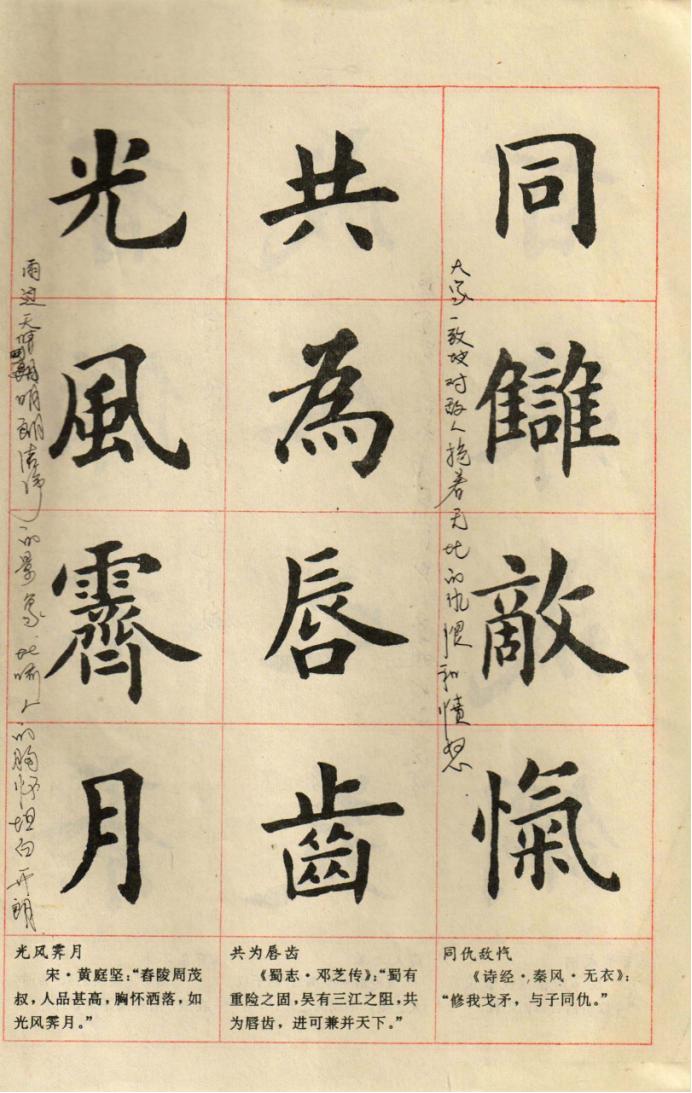 同讎敵愾
大家一致地对敌人抱着无比的仇恨和愤怒
共為唇齒
光風霽月
雨过天晴明朗洁净的景象.比喻人的胸怀坦白开朗
同仇敌忾
《诗经·秦风·无衣》:
“修我戈矛，与子同仇。”
共为唇齿
《蜀志·邓芝传》:“蜀有
重险之固，吴有三江之阻，共
为唇齿，进可兼并天下。”
光风霁月
宋·黄庭坚:“舂陵周茂
叔，人品甚高，胸怀洒落，如
光风霁月。”